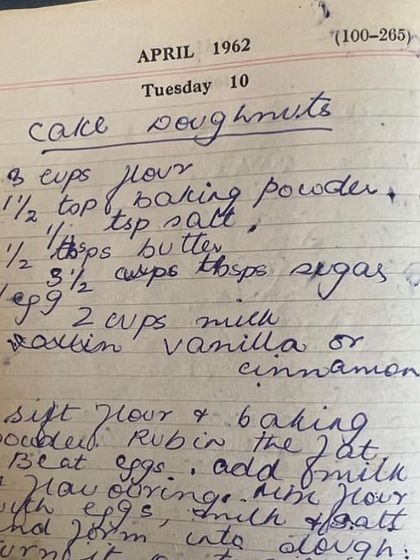 APRIL 1962 (100–265)
Tuesday 10
Cake Doughnuts
3 cups flour
1 1/2 tsp baking powder.
tsp salt.
1/2 tbsps butter
3 1/2 tbsps sugar
1 egg
2 cups milk
vanilla or
cinnamon
Sift flour & baking
powder. Rub in the fat.
Beat eggs. add milk
flavouring. flour
with eggs, milk & salt
and form into dough.